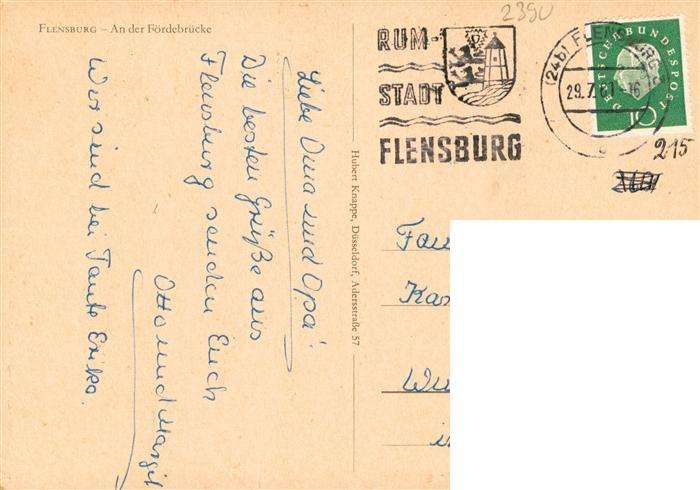 FLENSBURG – An der Fördebrücke
Liebe Oma und Opa!
Die besten Grüße aus
Flensburg senden Euch
Otto und Margit
Wir sind bei Tante Erika.
Hubert Knappe, Düsseldorf, Adersstraße 57
2390
RUM-
STADT
FLENSBURG
(24b) FLENSBURG
29.7.61-16
DEUTSCHE BUNDESPOST
10
215
Fam
Kas
Wu
in